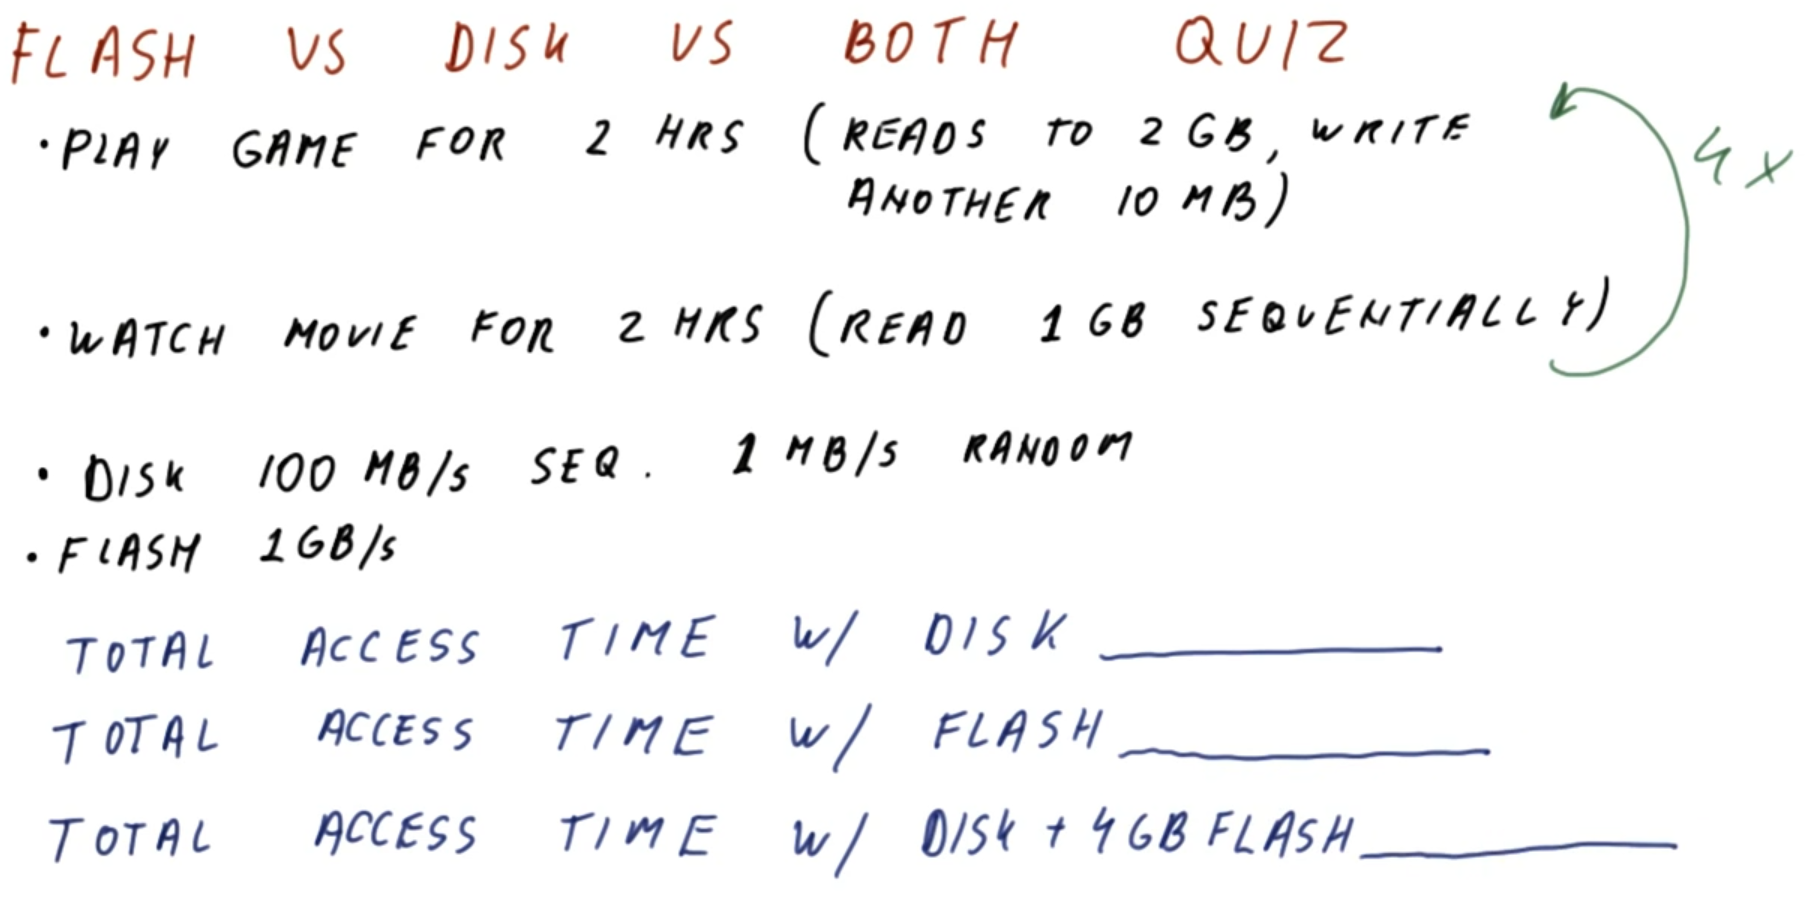 FLASH VS DISK VS BOTH QUIZ
• PLAY GAME FOR 2 HRS (READS TO 2 GB, WRITE
ANOTHER 10 MB)
4x
• WATCH MOVIE FOR 2 HRS (READ 1 GB SEQUENTIALLY)
• DISK 100 MB/s SEQ. 1 MB/s RANDOM
• FLASH 1GB/s
TOTAL ACCESS TIME W/ DISK
TOTAL ACCESS TIME W/ FLASH
TOTAL ACCESS TIME W/ DISK + 4GB FLASH